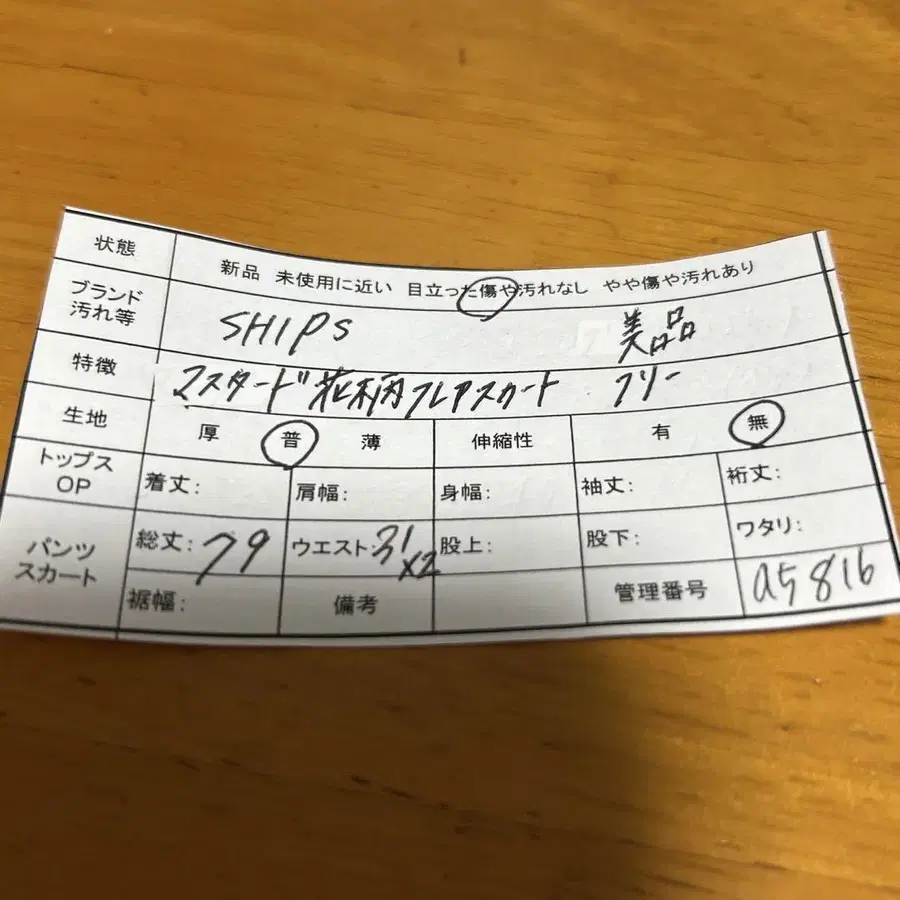 状態 新品 未使用に近い 目立った傷や汚れなし やや傷や汚れあり
ブランド 汚れ等 SHIPS 美品
特徴 マスタード花柄フレアスカート フリー
生地 厚 普 薄 伸縮性 有 無
トップス OP 着丈: 肩幅: 身幅: 袖丈: 裄丈:
パンツ スカート 総丈: 79 ウエスト: 31x2 股上: 股下: ワタリ:
裾幅: 備考 管理番号 a5816